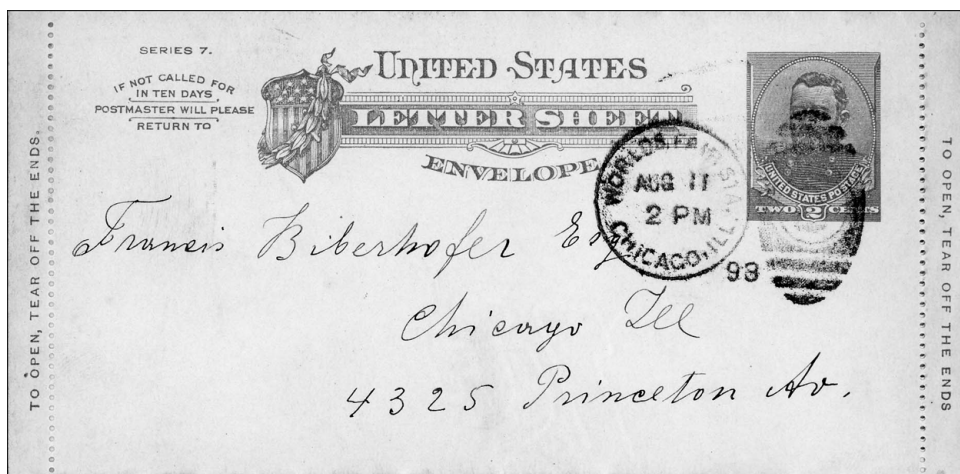 SERIES 7.
IF NOT CALLED FOR
IN TEN DAYS
POSTMASTER WILL PLEASE
RETURN TO
UNITED STATES
LETTER SHEET
ENVELOPE
UNITED STATES POSTAGE
TWO 2 CENTS
WORLD'S FAIR STA.
AUG 11
2 PM
CHICAGO, ILL.
93
Francis Biberhofer Esq
Chicago Ill
4325 Princeton Av.
TO OPEN, TEAR OFF THE ENDS.
TO OPEN, TEAR OFF THE ENDS